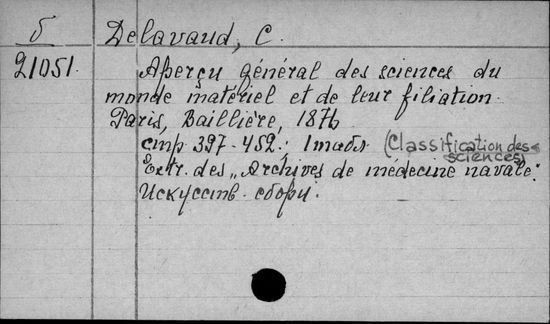 Б Delavaud, C.
21051. Aperçu général des sciences du
monde matériel et de leur filiation
Paris, Baillière, 1876
стр 397-452; 1 табл (Classification des
sciences)
Extr. des „Archives de médecine navale".
Искусств. сборн.